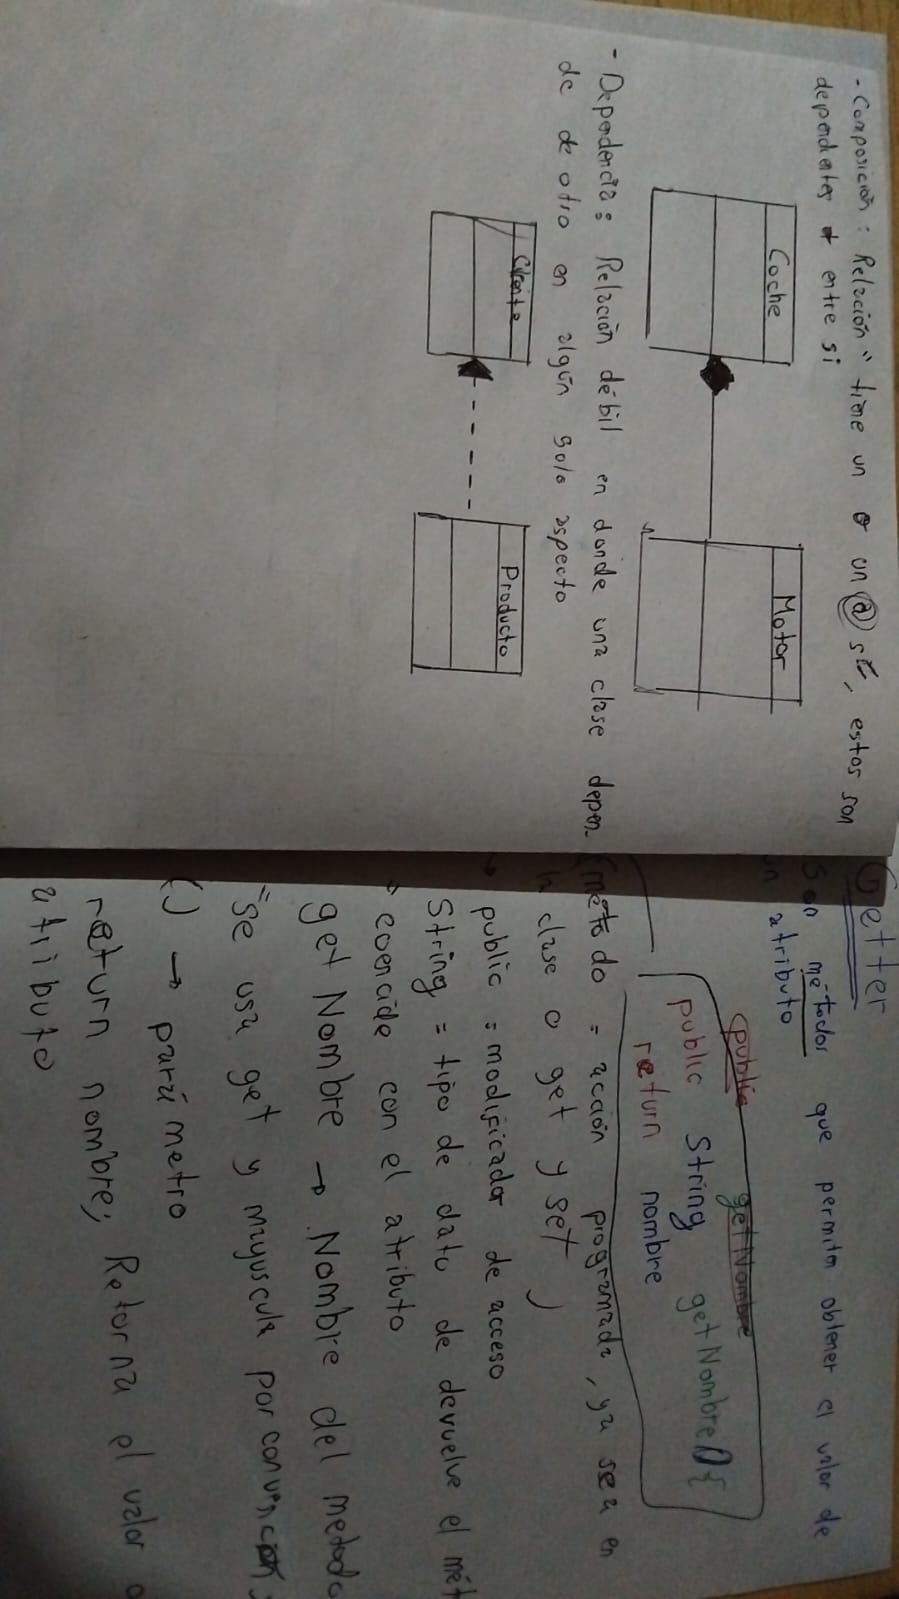 - Composición: Relación "tiene un o un@s", estos son
dependientes entre si
Coche
Motor
- Dependencia: Relación débil en donde una clase depen-
de de otro en algún solo aspecto
Cliente
Producto
Getter
Son métodos que permiten obtener el valor de
un atributo
public getNombre
public String getNombre() {
return nombre
(método = acción programada, ya sea en
clase o get y set)
public = modificador de acceso
String = tipo de dato de devuelve el mét
coencide con el atributo
getNombre → Nombre del metodo
= se usa get y mayuscula por convención
() → parámetro
return nombre; Retorna el valor
atributo